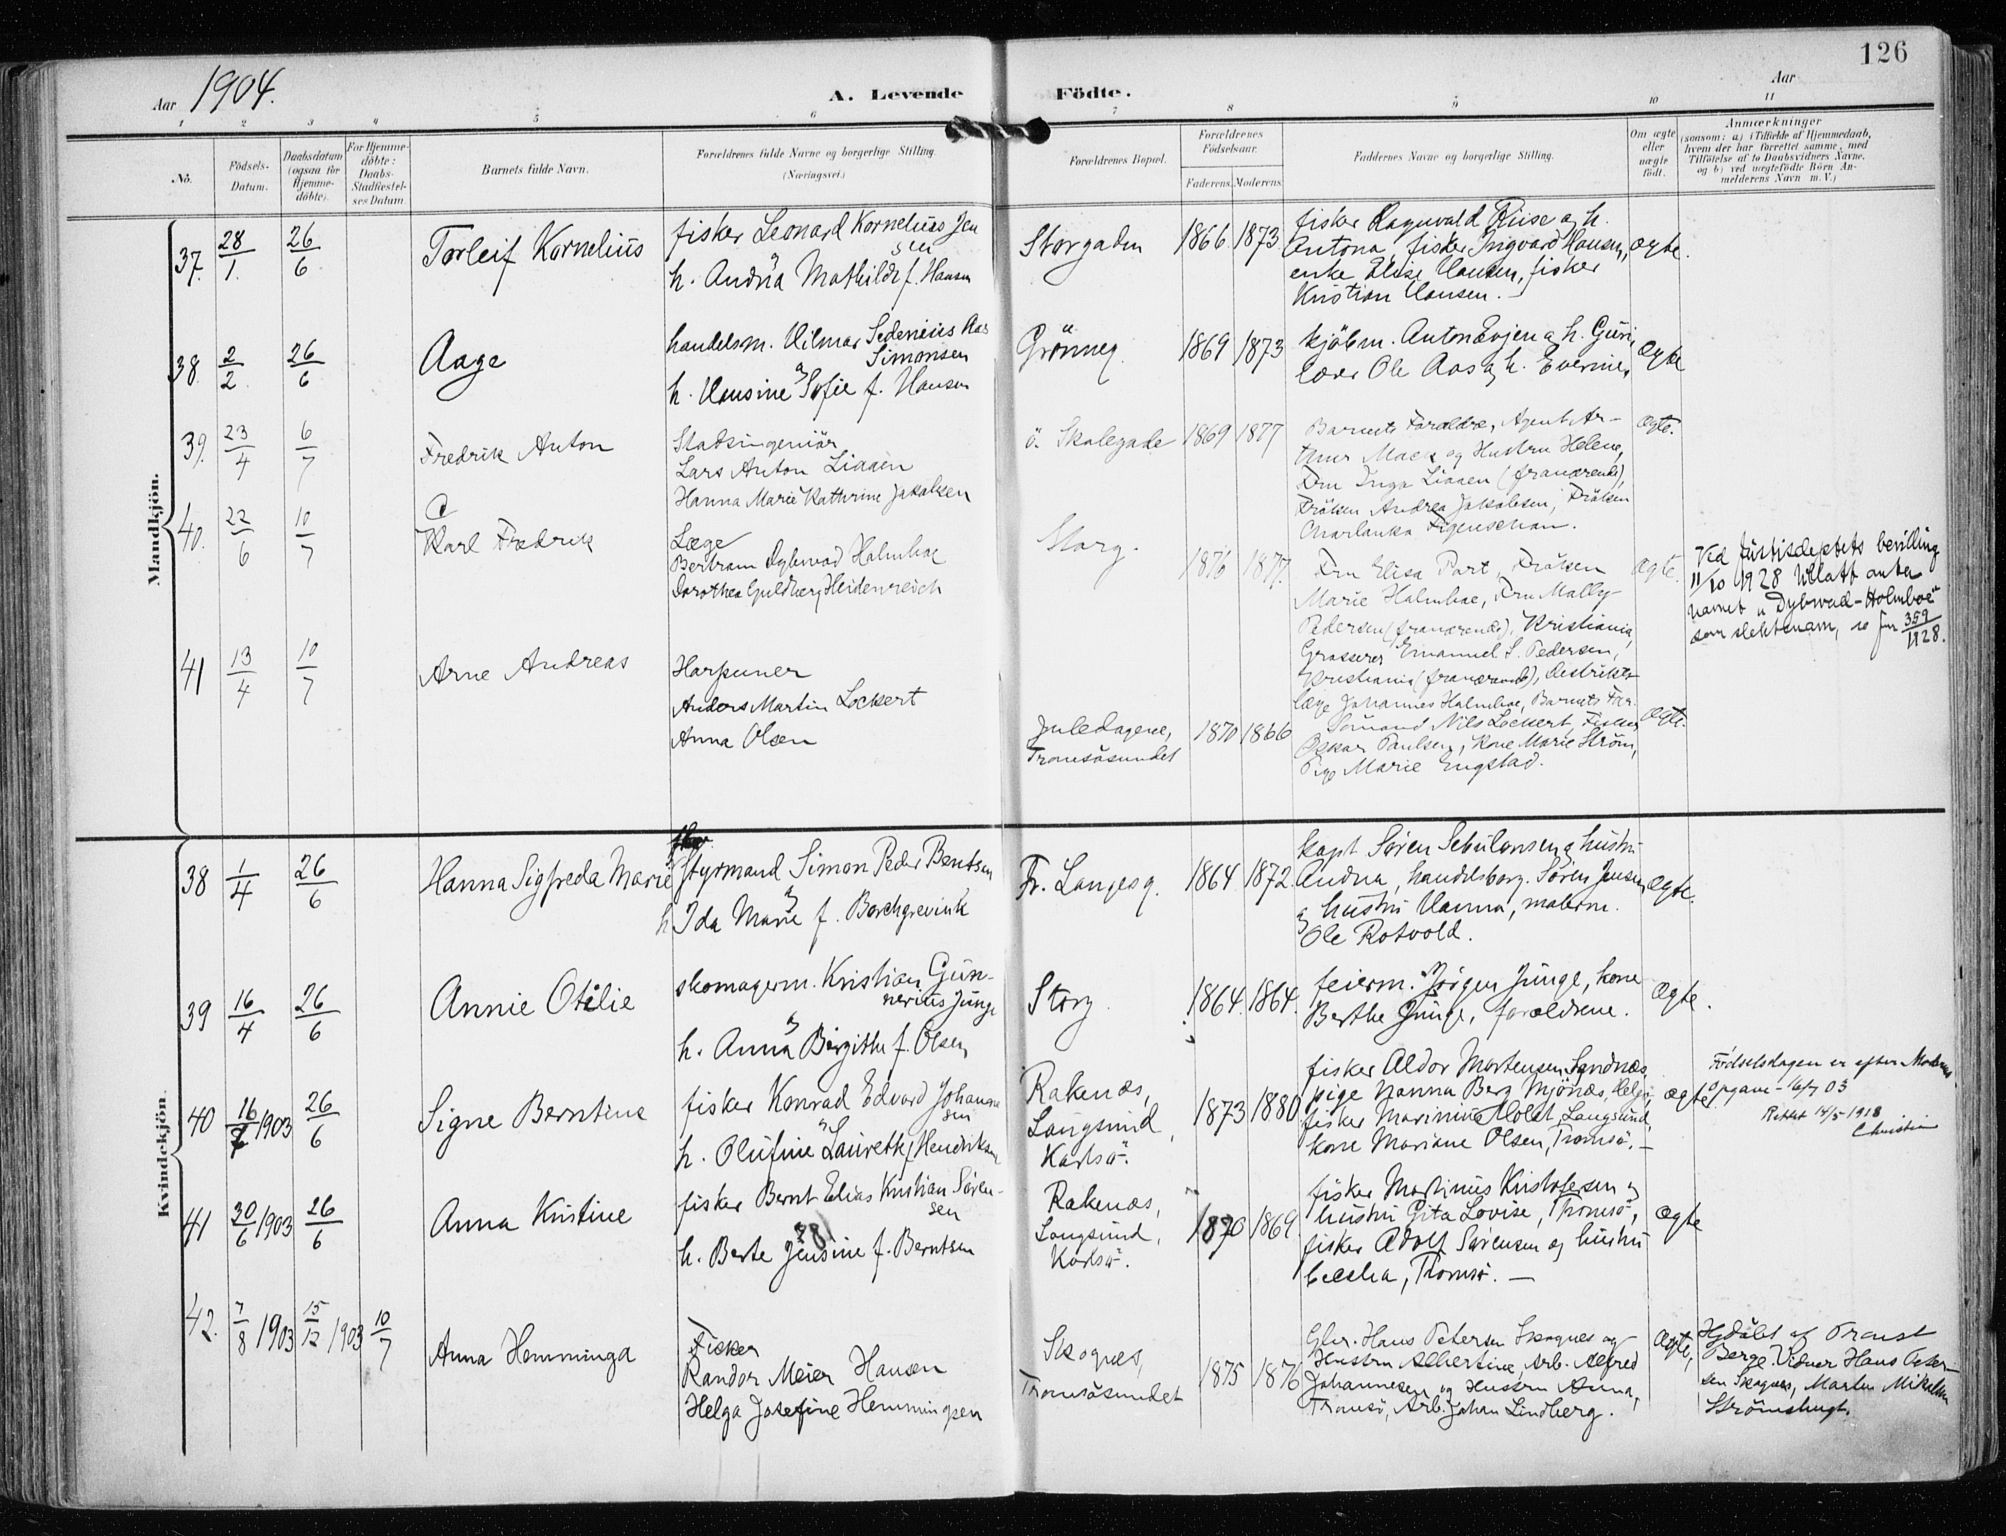 126
Aar 1904.
A. Levende Födte.
Aar
1 2 3 4 5 6 7 8 9 10 11
No.
Födsels-
Datum.
Daabsdatum
(ogsaa for
Hjemme-
döbte).
For Hjemme-
döbte:
Daabs-
Stadfæstel-
ses Datum.
Barnets fulde Navn.
Forældrenes fulde Navne og borgerlige Stilling.
(Næringsvei.)
Forældrenes Bopæl.
Forældrenes
Födselsaar.
Faderens. Moderens.
Faddernes Navne og borgerlige Stilling.
Om ægte
eller
uægte
födt.
Anmærkninger
(saasom: a) i Tilfælde af Hjemmedaab,
hvem der har forrettet samme, med
Tilföielse af to Daabsvidners Navne,
og b) ved uægtefödte Börn An-
melderens Navn m. V.)
Mandkjön.
37. 28/1. 26/6
Torleif Kornelius
fisker Leonard Kornelius Jen
sen
h. Andrea Mathilde f. Hansen
Storgaden
1866. 1873
fisker Ragnvald Riise og h.
Antona, fisker Ingvard Hansen,
enke Elise Hansen, fisker
Kristian Hansen. -
ægte.
38. 2/2. 26/6
Aage
handelsm. Hilmar Sedenius Aas
Simonsen
h. Hansine Sofie f. Hansen
Grönneg.
1869 1873
kjöbm. Anton Evjen og h. Guri,
Ole Aas og h. Everine,
ægte
39. 23/4 6/7
Fredrik Anton
Stadsingeniör
Lars Anton Liaaen
Hanna Marie Kathrine Jakobsen
ö. Skolegade
1869 1877
Barnets Forældre, Agent Ar-
thur Mack og Hustru Helene,
Fru Inga Liaaen (fraværende),
Fröken Andrea Jakobsen, Fröken
Charlanka Figenschau.
ægte.
40. 22/6 10/7
C
Karl Fredrik
Læge
Bertram Dybwad Holmboe
Dorothea Guldberg Heidenreich
Storg.
1876 1877.
Fru Elisa Part, Fröken
Marie Holmboe, Fru Mally
Pedersen (fraværende), Kristiania,
Grosserer Emanuel S. Pedersen,
Kristiania (fraværende), distrikts-
læge Johannes Holmboe, Barnets Far.
ægte.
Ved Justisdeptets bevilling
11/10 1928 tillatt anta
navnet "Dybwad-Holmboe"
som slektsnavn, se jnr 359/1928.
41 13/4 10/7
Arne Andreas
Harpuner
Anders Martin Lockert
Anna Olsen
Juledagene,
Tromsösundet
1870 1866
Sömand Nils Lockert, Fisker
Oskar Paulsen, Kone Marie Ström,
Pige Marie Engstad.
ægte.
Kvindekjön.
38 1/4 26/6
Hanna Sigfreda Marie
Styrmand Simon Peder Berntsen
h Ida Marie f. Borchgrevink
Fr. Langesg.
1864 1872.
kapt Sören Sebulonsen og hustru
Andrea, handelsborg. Sören Jensen
og hustru Hanna, malerm.
Ole Rotvold.
ægte.
39 16/4 26/6
Annie Otilie
skomagerm. Kristian Gun-
nerius Junge
h. Anna Birgitte f. Olsen
Storg.
1864. 1864.
feierm. Jörgen Junge, kone
Berthe Junge, forældrene.
ægte.
40 16/7 1903 26/6
Signe Berntine
fisker Konrad Edvard Johanne
sen
h. Olufine Laurette f Hendriksen
Rakenæs,
Langsund,
Karlsö.
1873 1880
fisker Aldor Mortensen Sandnæs,
pige Nanna Berg Mjönæs, Helgö,
fisker Marinius Holst Langsund,
kone Mariane Olsen, Tromsö. -
ægte
Födselsdagen er efter Moderens
Opgave - 6/7 03
Rettet 14/5 1918
41 30/6 1903 26/6
Anna Kristine
fisker Bernt Elias Kristian Sören-
sen
h. Berte Jensine f. Berntsen
Rakenæs,
Langsund,
Karlsö.
1870 1869.
fisker Martinus Kristofersen og
hustru Gita Lovise, Tromsö,
fisker Adolf Sörensen og hustru
Cecelia, Tromsö. -
ægte
42. 7/8 1903 15/12 1903 10/7
Anna Hemminga
Fisker
Randor Meier Hansen
Helga Josefine Hemmingsen
Skognes,
Tromsösundet
1875 1876
Gbr. Hans Petersen Skognes og
Hustru Albertine, Arb. Alfred
Johannesen og Hustru Anna,
Tromsö, Arb. Johan Lindberg.
ægte,
Hjdöbt af Provst
Berge. Vidner Hans Peter-
sen Skognes, Martin Mikalsen
Strömshugt.